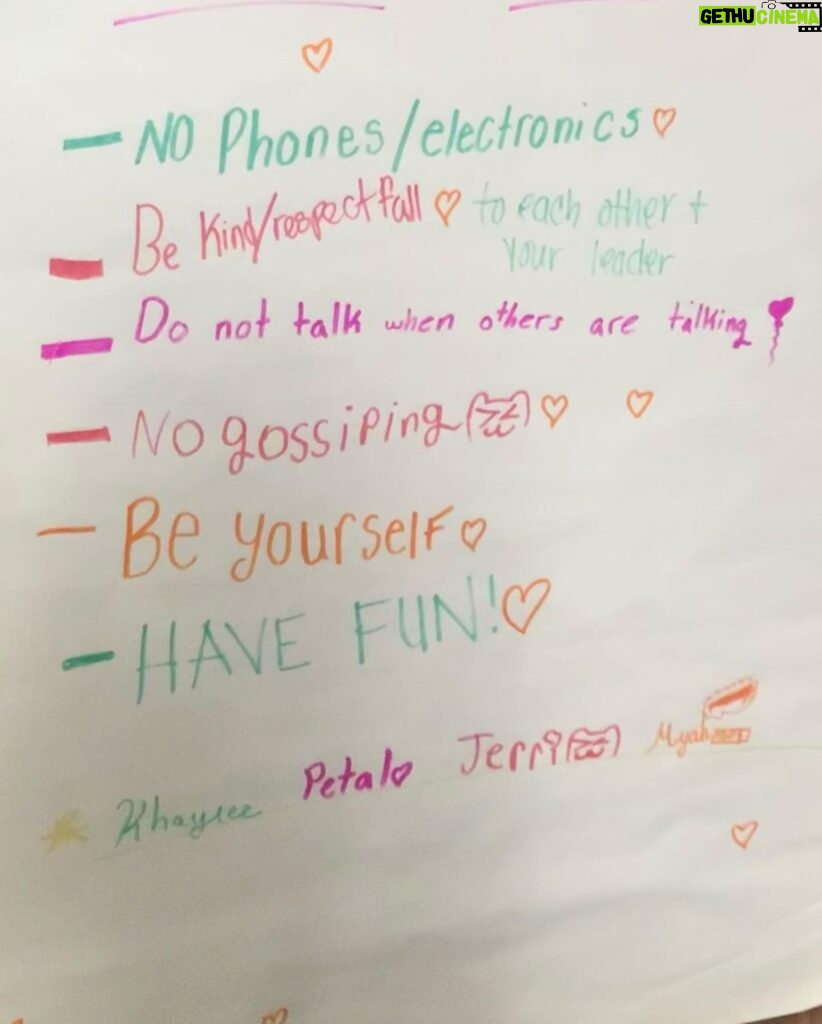 GETHUCINEMA
- NO Phones/electronics
- Be Kind/respectfall to each other +
Your leader
- Do not talk when others are talking
- No gossiping
- Be yourself
- HAVE FUN!
Khaylee Petal Jerri Myah